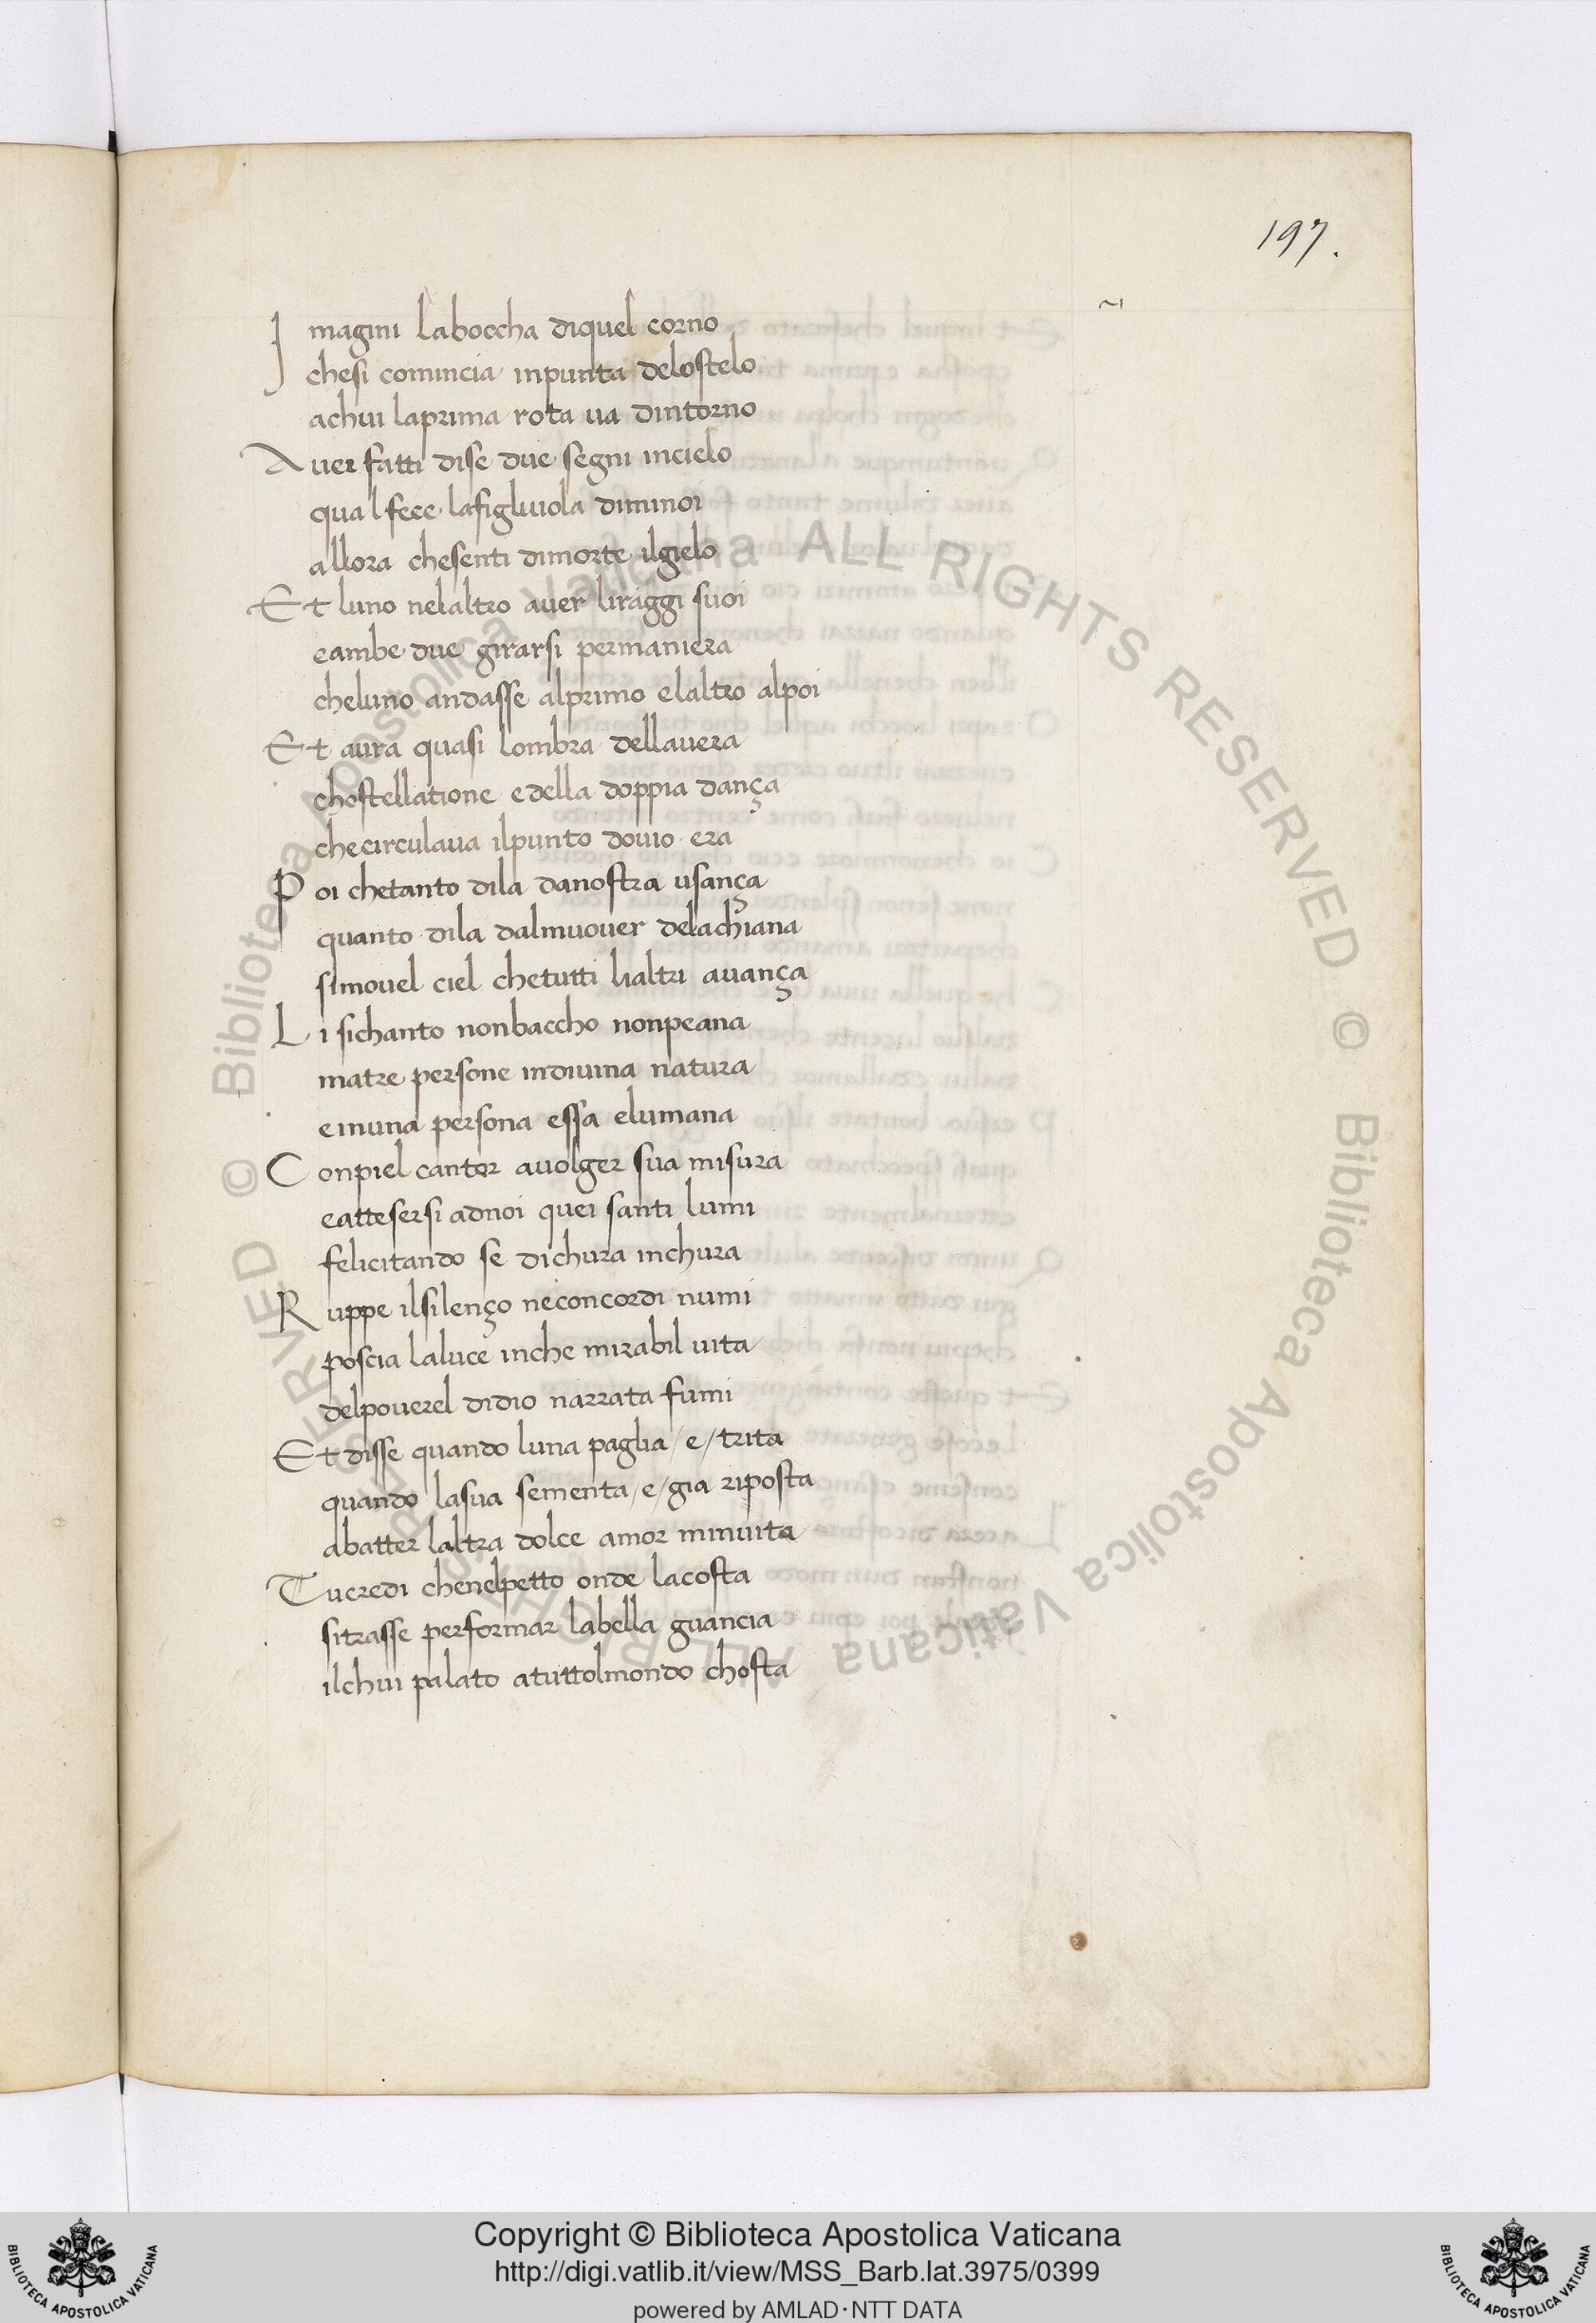 197.
I magini laboccha diquel corno
chesi comincia inpunta delostelo
achui laprima rota ua dintorno
A uer fatti dise due segni incielo
qual fece lafigluiola diminoi
allora chesenti dimorte ilgielo
E t luno nelaltro auer liraggi suoi
eambe due girarsi permaniera
cheluno andasse alprimo elaltro alpoi
E t aura quasi lombra dellauera
chostellatione edella doppia dança
checirculaua ilpunto douio era
P oi chetanto dila danostra usança
quanto dila dalmuouer delachiana
simouel ciel chetutti lialtri auança
L i sichanto nonbaccho nonpeana
matre persone indiuina natura
einuna persona essa elumana
C onpiel cantor auolger sua misura
eattesersi adnoi quei santi lumi
felicitando se dichura inchura
R uppe ilsilenço neconcordi numi
poscia laluce inche mirabil uita
delpouerel didio narrata fumi
E t disse quando luna paglia/e/trita
quando lasua sementa/e/gia riposta
abatter laltra dolce amor minuita
T ucredi chenelpetto onde lacosta
sitrasse performar labella guancia
ilchui palato atuttolmondo chosta
© Biblioteca Apostolica Vaticana ALL RIGHTS RESERVED © Biblioteca Apostolica Vaticana ALL RIGHTS RESERVED
Copyright © Biblioteca Apostolica Vaticana
http://digi.vatlib.it/view/MSS_Barb.lat.3975/0399
powered by AMLAD·NTT DATA
BIBLIOTECA APOSTOLICA VATICANA
BIBLIOTECA APOSTOLICA VATICANA